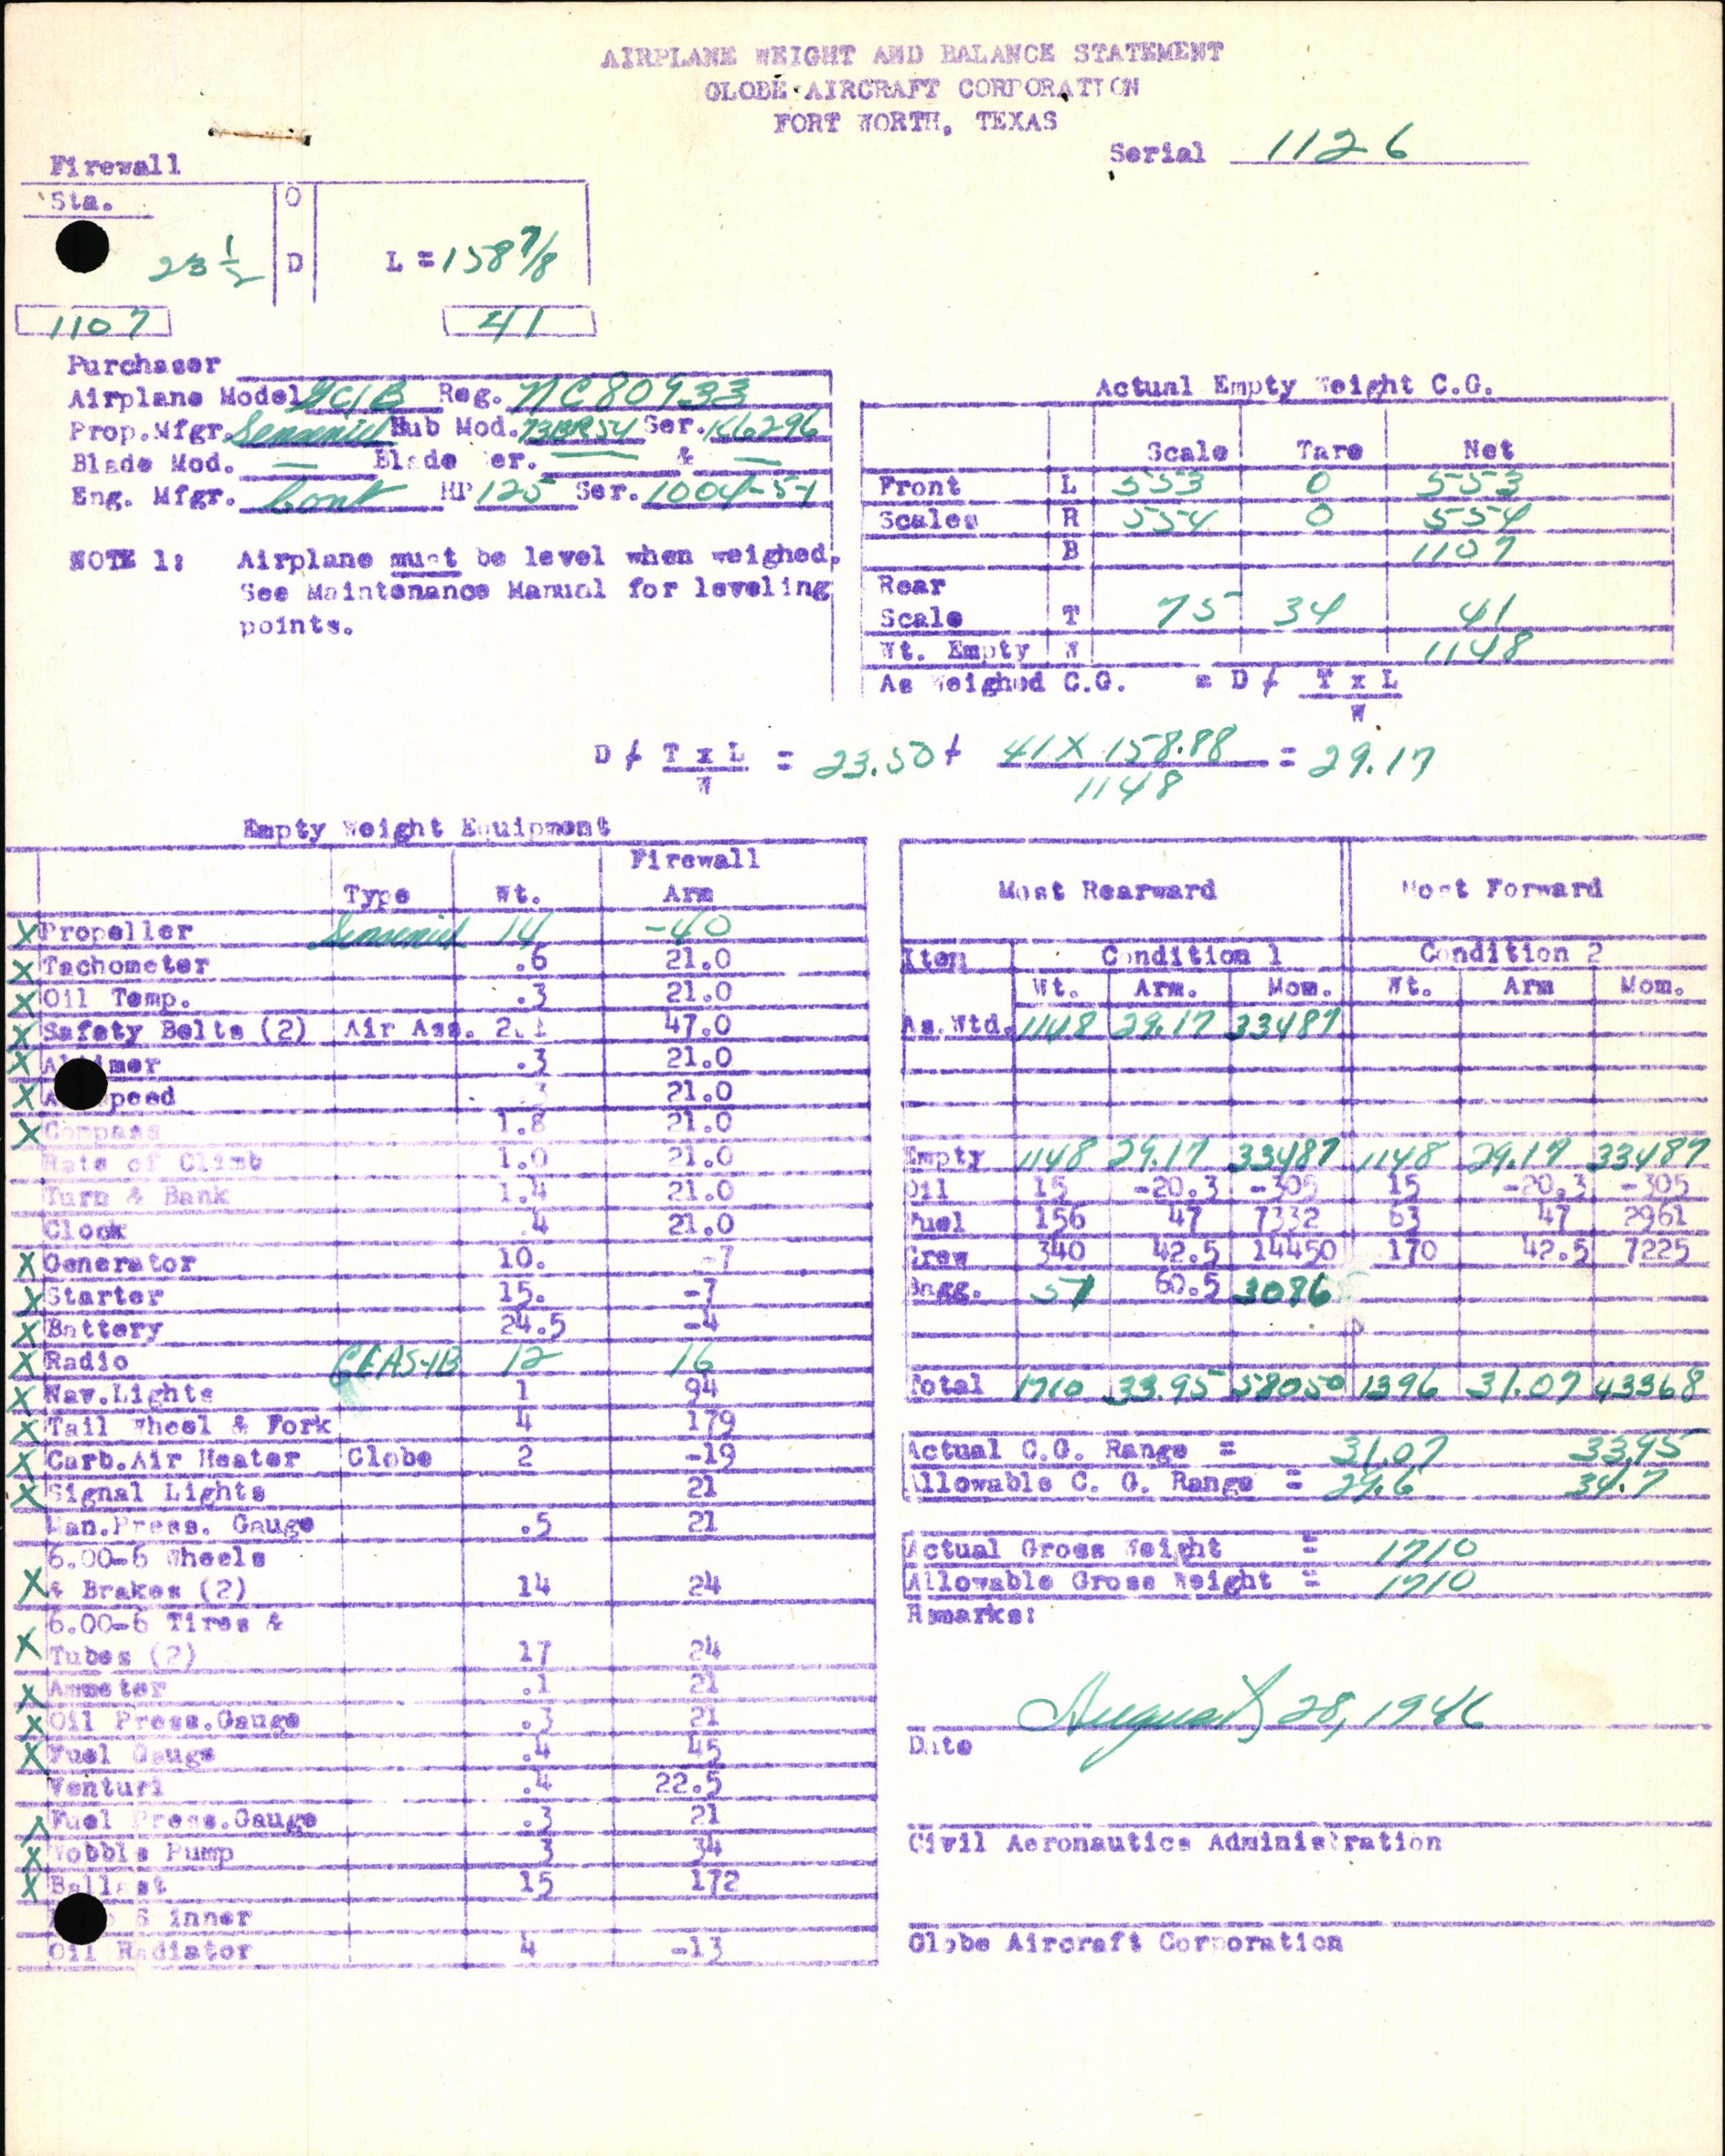 AIRPLANE WEIGHT AND BALANCE STATEMENT
GLOBE AIRCRAFT CORPORATION
FORT WORTH, TEXAS
Serial 1126
Firewall
Sta. O
23 1/2 D L = 158 7/8
1107 41
Purchaser
Airplane Model GC1B Reg. NC80933
Prop.Mfgr. Sensenich Hub Mod. 73BR54 Ser. K6296
Blade Mod. — Blade Ser. — & —
Eng. Mfgr. Cont HP 125 Ser. 1004-51
NOTE 1: Airplane must be level when weighed.
See Maintenance Manual for leveling
points.
Actual Empty Weight C.G.
Scale Tare Net
Front L 553 0 553
Scales R 554 0 554
B 1107
Rear
Scale T 75 34 41
Wt. Empty W 1148
As Weighed C.G. = D + T x L
W
D + T x L / W = 23.50 + 41 X 158.88 / 1148 = 29.17
Empty Weight Equipment
Firewall
Type Wt. Arm
X Propeller Sensenich 14 -40
X Tachometer .6 21.0
X Oil Temp. .3 21.0
X Safety Belts (2) Air Ass. 2.1 47.0
X Al imer .3 21.0
X A speed 3 21.0
X Compass 1.8 21.0
Rate of Climb 1.0 21.0
Turn & Bank 1.4 21.0
Clock .4 21.0
X Generator 10. -7
X Starter 15. -7
X Battery 24.5 -4
X Radio GEAS-1B 12 16
X Nav.Lights 1 94
X Tail Wheel & Fork 4 179
X Carb.Air Heater Globe 2 -19
X Signal Lights 21
Man.Press. Gauge .5 21
6.00-6 Wheels
X & Brakes (2) 14 24
6.00-6 Tires &
X Tubes (2) 17 24
X Ammeter .1 21
X Oil Press.Gauge .3 21
X Fuel Gauge .4 45
Venturi .4 22.5
X Fuel Press.Gauge .3 21
X Wobble Pump 3 34
X Ballast 15 172
S inner
Oil Radiator 4 -13
Most Rearward Most Forward
Item Condition 1 Condition 2
Wt. Arm. Mom. Wt. Arm Mom.
As.Wtd. 1148 29.17 33487
Empty 1148 29.17 33487 1148 29.17 33487
Oil 15 -20.3 -305 15 -20.3 -305
Fuel 156 47 7332 63 47 2961
Crew 340 42.5 14450 170 42.5 7225
Bagg. 51 60.5 3086
Total 1710 33.95 58050 1396 31.07 43368
Actual C.G. Range = 31.07 33.95
Allowable C. G. Range = 29.6 34.7
Actual Gross Weight = 1710
Allowable Gross Weight = 1710
Remarks:
August 28, 1946
Date
Civil Aeronautics Administration
Globe Aircraft Corporation